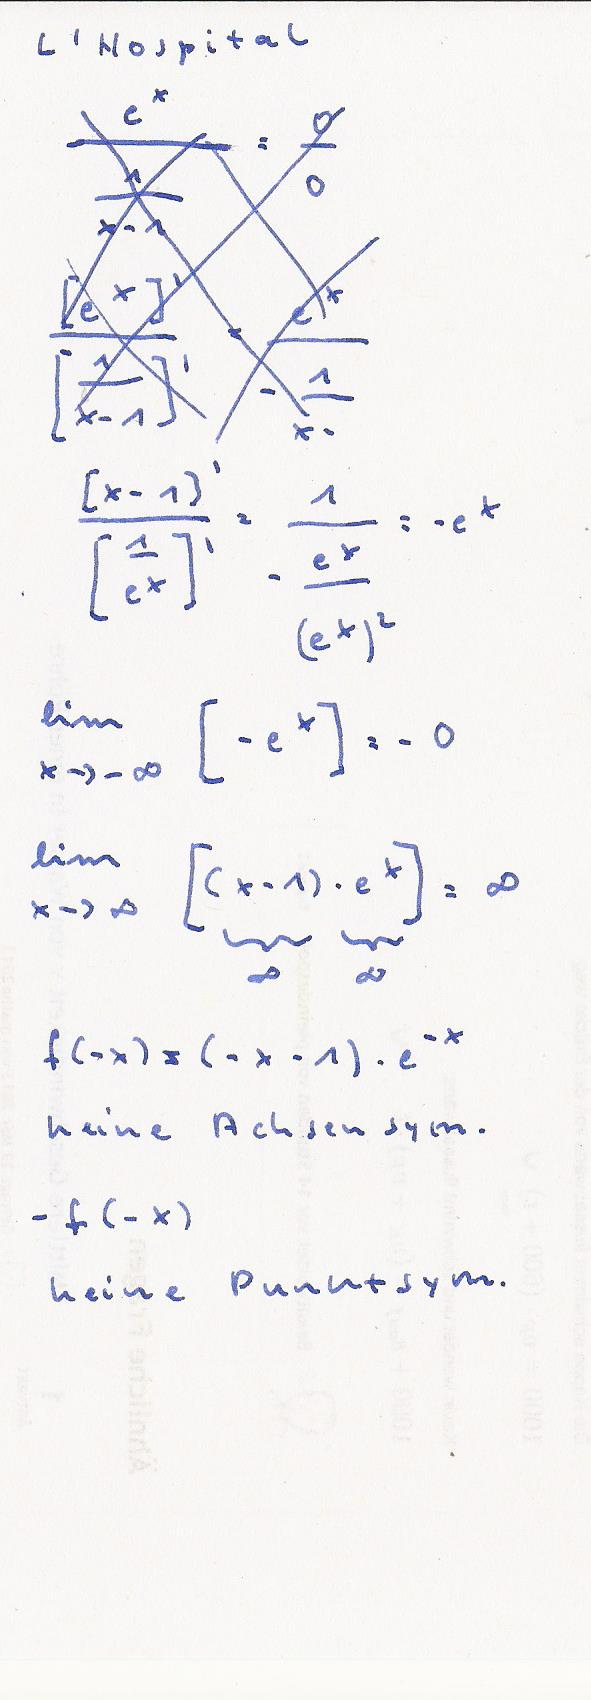 L'Hospital
e^x / (1/(x-1)) = 0/0
[e^x]' / [1/(x-1)]' = e^x / (- 1/x-
[x-1]' / [1/e^x]' = 1 / (- e^x/(e^x)^2) = -e^x
lim x->-∞ [-e^x] = -0
lim x->∞ [(x-1)·e^x] = ∞
∞ ∞
f(-x) = (-x-1)·e^-x
keine Achsensym.
-f(-x)
keine Punktsym.
Ähnliche Fragen